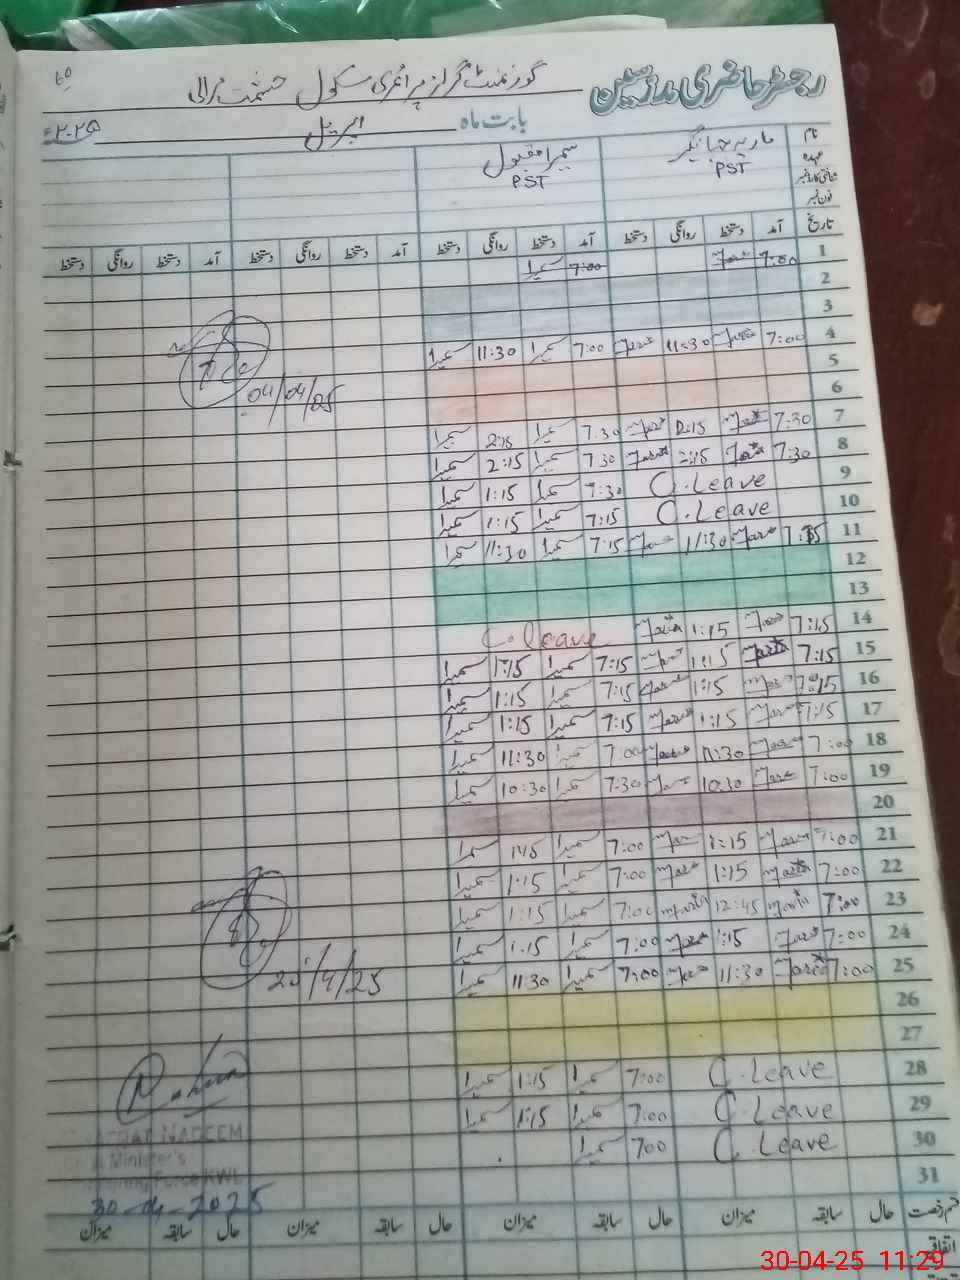 رجسٹر حاضری مدرسین گورنمنٹ گرلز پرائمری سکول حشمت مرالی
بابت ماہ اپریل ۲۰۲۵ء
نام ماریہ جہانگیر سمیرا مقبول
عہدہ PST PST
شناختی کارڈ نمبر
فون نمبر
تاریخ آمد دستخط روانگی دستخط آمد دستخط روانگی دستخط آمد دستخط روانگی دستخط آمد دستخط روانگی دستخط
1 7:00 Maria 7:00 سمیرا
2
3
4 7:00 Maria 11:30 Maria 7:00 سمیرا 11:30 سمیرا
04/04/25
5
6
7 7:30 Maria 2:15 Maria 7:30 سمیرا 2:15 سمیرا
8 7:30 Maria 2:15 Maria 7:30 سمیرا 2:15 سمیرا
9 C.Leave 7:30 سمیرا 1:15 سمیرا
10 C.Leave 7:15 سمیرا 1:15 سمیرا
11 Maria 11:30 Maria 7:15 سمیرا 11:30 سمیرا
12
13
14 7:15 Maria 1:15 Maria C.leave
15 7:15 Maria 1:15 Maria 7:15 سمیرا 1:15 سمیرا
16 7:15 Maria 1:15 Maria 7:15 سمیرا 1:15 سمیرا
17 7:15 Maria 1:15 Maria 7:15 سمیرا 1:15 سمیرا
18 7:00 Maria 11:30 Maria 7:00 سمیرا 11:30 سمیرا
19 7:00 Maria 10:30 Maria 7:30 سمیرا 10:30 سمیرا
20
21 7:00 Maria 1:15 Maria 7:00 سمیرا 1:15 سمیرا
22 7:00 Maria 1:15 Maria 7:00 سمیرا 1:15 سمیرا
23 7:00 Maria 12:45 Maria 7:00 سمیرا 1:15 سمیرا
24 7:00 Maria 1:15 Maria 7:00 سمیرا 1:15 سمیرا
25 7:00 Maria 11:30 Maria 7:00 سمیرا 11:30 سمیرا
/4/25
26
27
28 C.Leave 7:00 سمیرا 1:15 سمیرا
29 C.Leave 7:00 سمیرا 1:15 سمیرا
30 C.Leave 7:00 سمیرا
31
NADEEM
Minister's
Force KWL
30-04-2025
قسم رخصت حال سابقہ میزان حال سابقہ میزان حال سابقہ میزان حال سابقہ میزان
اتفاقیہ
30-04-25 11:29